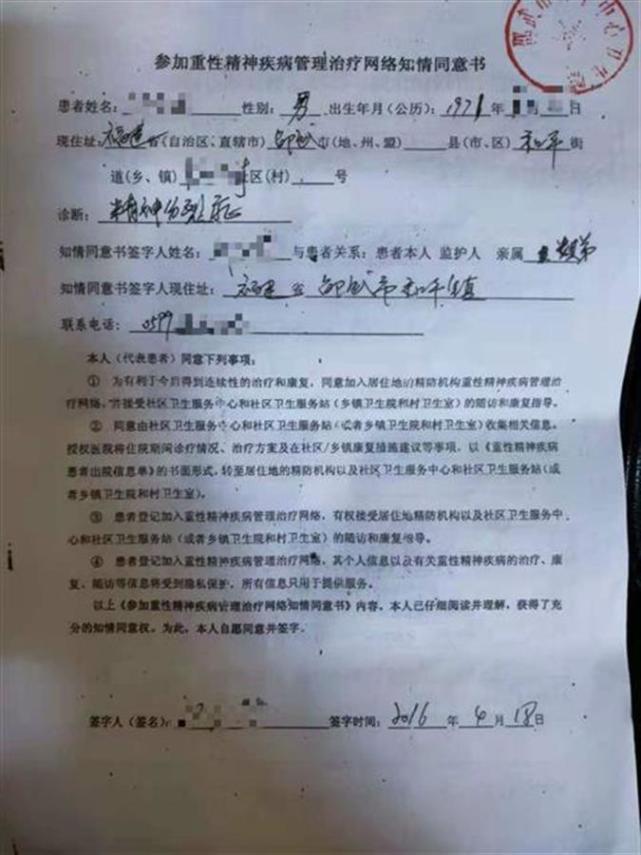 参加重性精神疾病管理治疗网络知情同意书
患者姓名: 性别: 男 出生年月(公历): 1971年 月 日
现住址: 福建省(自治区、直辖市)邵武市(地、州、盟) 县(市、区)和平街
道(乡、镇) 社区(村) 号
诊断: 精神分裂症
知情同意书签字人姓名: 与患者关系: 患者本人 监护人 亲属
知情同意书签字人现住址: 福建省邵武市和平镇
联系电话: 0599
本人(代表患者)同意下列事项:
① 为有利于今后得到连续性的治疗和康复,同意加入居住地的精防机构重性精神疾病管理治
疗网络,并接受社区卫生服务中心和社区卫生服务站(乡镇卫生院和村卫生室)的随访和康复指导。
② 同意由社区卫生服务中心和社区卫生服务站(或者乡镇卫生院和村卫生室)收集相关信息。
授权医院将住院期间诊疗情况、治疗方案及在社区/乡镇康复措施建议等事项,以《重性精神疾病
患者出院信息单》的书面形式,转至居住地的精防机构以及社区卫生服务中心和社区卫生服务站(或
者乡镇卫生院和村卫生室)。
③ 患者登记加入重性精神疾病管理治疗网络,有权接受居住地精防机构以及社区卫生服务中
心和社区卫生服务站(或者乡镇卫生院和村卫生室)的随访和康复指导。
④ 患者登记加入重性精神疾病管理治疗网络,其个人信息以及有关重性精神疾病的治疗、康
复、随访等信息将受到隐私保护,所有信息只用于提供服务。
以上《参加重性精神疾病管理治疗网络知情同意书》内容,本人已仔细阅读并理解,获得了充
分的知情同意权。为此,本人自愿同意并签字。
签字人(签名): 签字时间: 2016 年 4 月 18 日